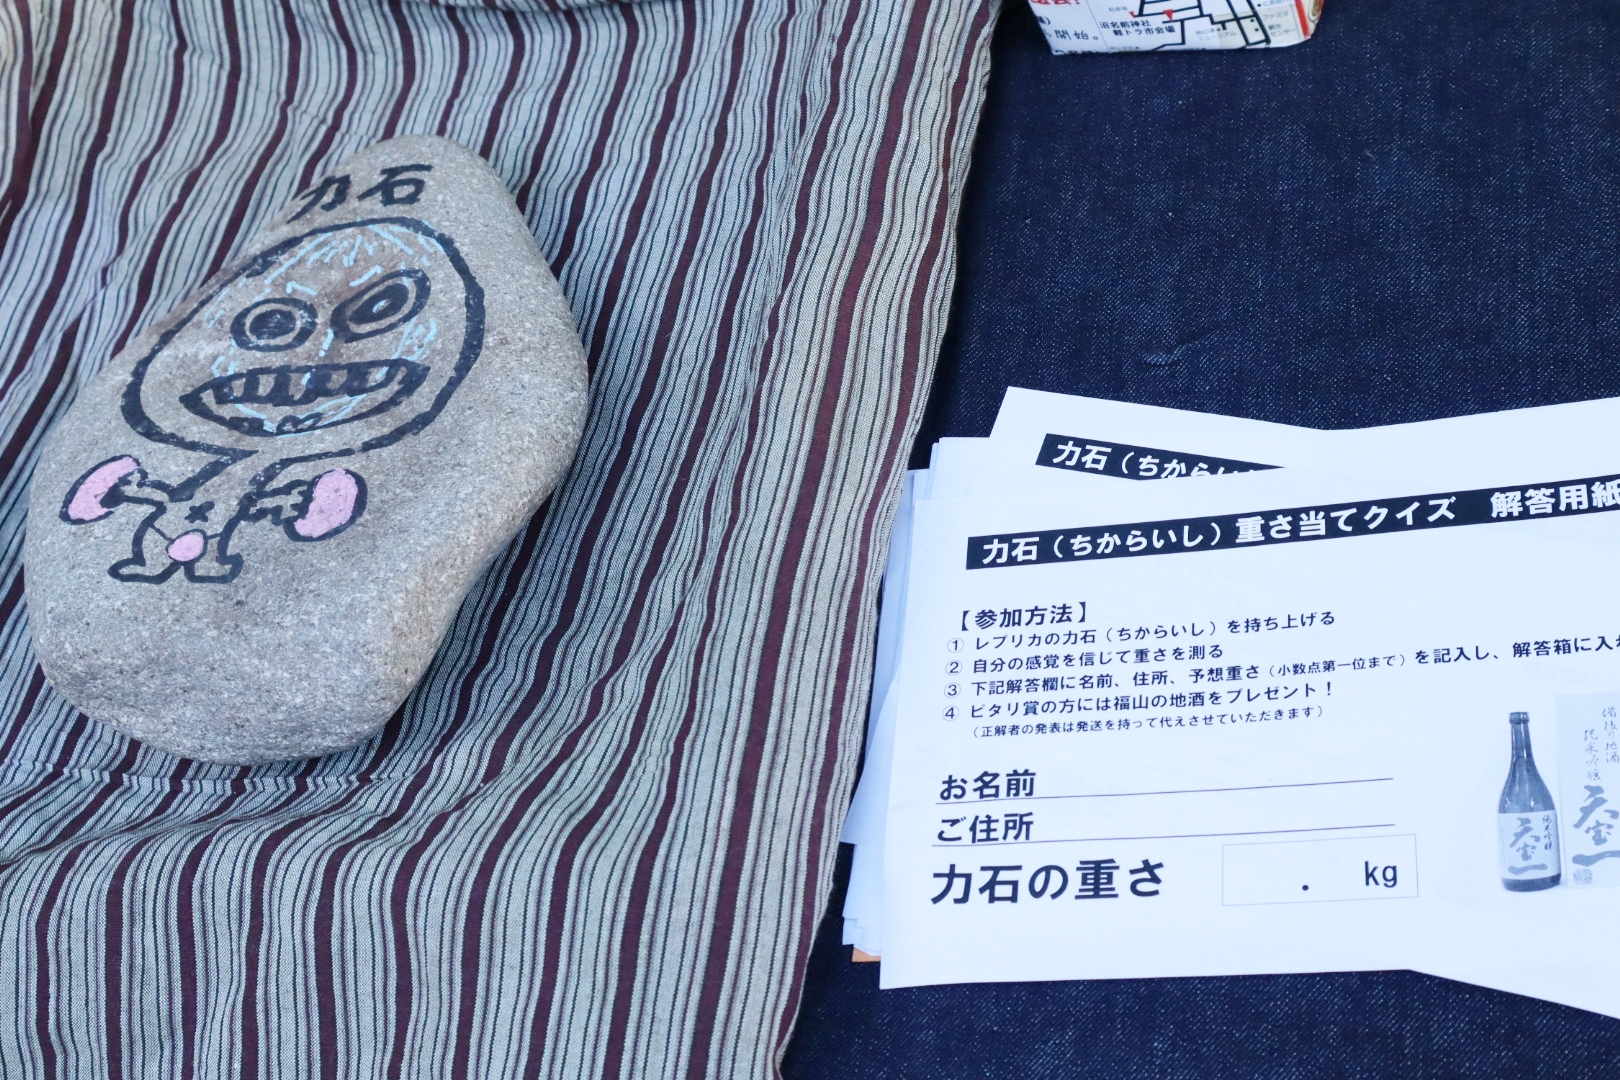 開始。
沼名前神社
軽トラ市会場
力石
力石（ちからい
力石（ちからいし）重さ当てクイズ 解答用紙
【参加方法】
① レプリカの力石（ちからいし）を持ち上げる
② 自分の感覚を信じて重さを測る
③ 下記解答欄に名前、住所、予想重さ（小数点第一位まで）を記入し、解答箱に入れ
④ ピタリ賞の方には福山の地酒をプレゼント！
（正解者の発表は発送を持って代えさせていただきます）
お名前
ご住所
力石の重さ . kg
備後の地酒
純米吟醸
天宝一
純米吟醸
天宝一